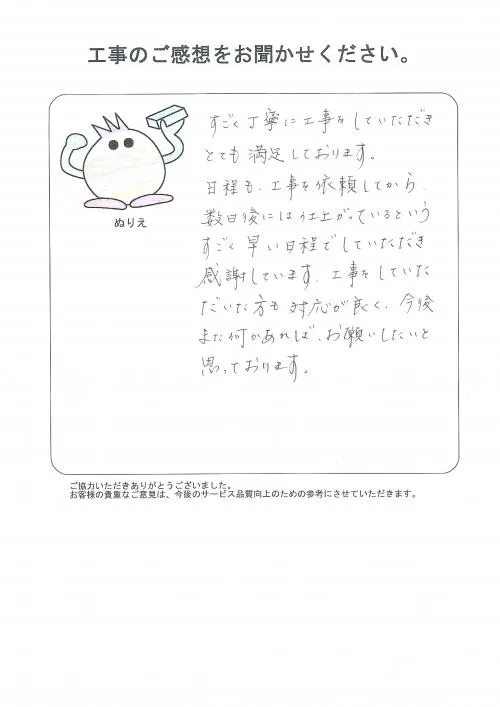 工事のご感想をお聞かせください。
ぬりえ
すごく丁寧に工事をしていただき
とても満足しております。
日程も、工事を依頼してから、
数日後には仕上がっているという
すごく早い日程でしていただき
感謝しています。工事をしていた
だいた方も対応が良く、今後
また何かあれば、お願いしたいと
思っております。
ご協力いただきありがとうございました。
お客様の貴重なご意見は、今後のサービス品質向上のための参考にさせていただきます。